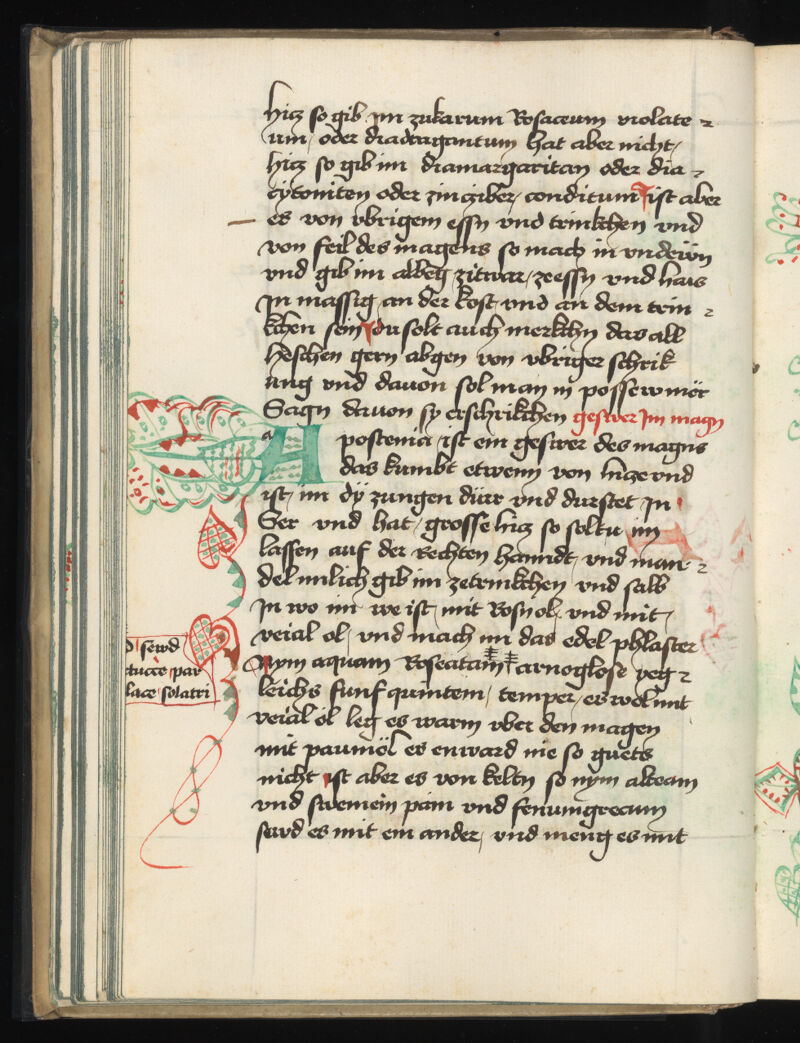 hicz so gib im zukarum Rosaceum violate
um oder diadragantum hat aber nicht
hicz so gib im diamargariton oder dia
cytoniten oder zinziber conditum ist aber
es von vbrigem essn vnd trinkchen vnd
von feil des magens so mach in vndeün
vnd gib im albeg zitwar zeessn vnd hais
In massig an der kost vnd an dem trin
kchen sein du solt auch merkchn das all
heschen gern abgen von vbriger schrik
ung vnd davon sol man in posse new mër
Sagn davon sy erschrikchen geswer Im magn
A postenia ist ein geswer des magns
das kumbt etwenn von hicze vnd
ist im dÿ zungen dürr vnd durstet In
Ser vnd hat grosse hicz so soltu im
lassen auf der Rechten hanndt vnd man
del milich gib im zetrinkchen vnd salb
In wo im we ist mit Rosn ol vnd mit
veial ol vnd mach im das edel phlaster
Nym aquam Roseatam arnoglose yeg
leichs funf quintein temper es wol mit
veial öl leg es warm vber den magen
mit paumöl es enward nie so guets
nicht ist aber es von kelten so nym alteam
vnd swemein pain vnd fenumgrecum
sewd es mit ein ander vnd meng es mit
sewd
tucce por
lace solatri